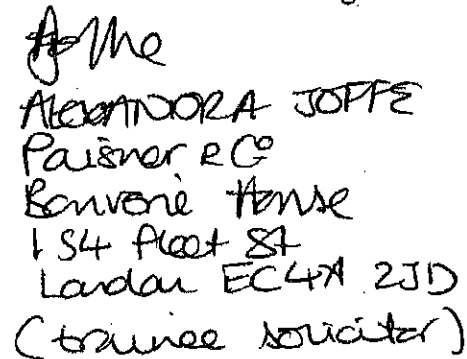 ALEXANDRA JOFFE
Paisner & Co
Bouverie House
154 Fleet St
London EC4A 2JD
(trainee solicitor)